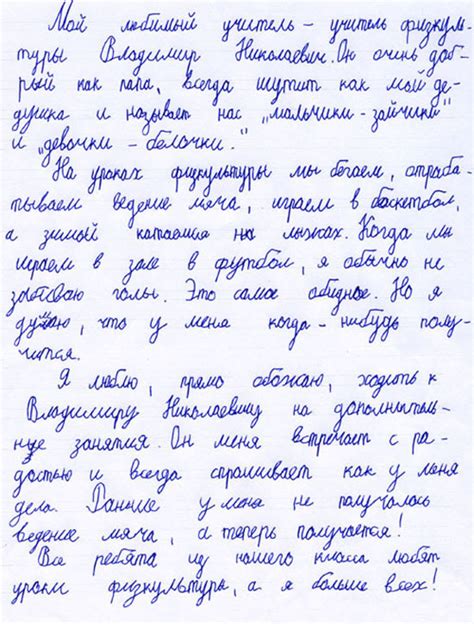 Мой любимый учитель – учитель физкуль-
туры Владимир Николаевич. Он очень доб-
рый как папа, всегда шутит как мой де-
душка и называет нас „мальчики-зайчики"
и „девочки – белочки."
На уроках физкультуры мы бегаем, отраба-
тываем ведение мяча, играем в баскетбол,
а зимой катаемся на лыжах. Когда мы
играем в зале в футбол, я обычно не
забиваю голы. Это самое обидное. Но я
думаю, что у меня когда-нибудь полу-
чится.
Я люблю, прямо обожаю, ходить к
Владимиру Николаевичу на дополнитель-
ные занятия. Он меня встречает с ра-
достью и всегда спрашивает как у меня
дела. Раньше у меня не получалось
ведение мяча, а теперь получается!
Все ребята из нашего класса любят
уроки физкультуры, а я больше всех!